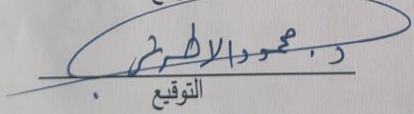 د. محمود الاطرش
التوقيع